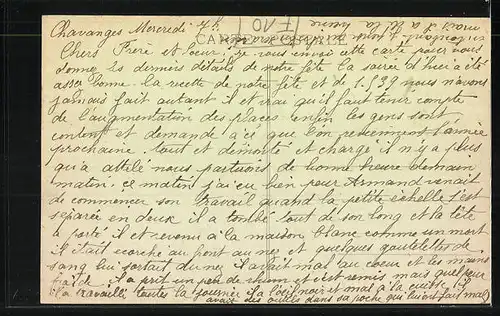 Chavanges Mercredi 7h
CARTE POSTALE
Chers Frère et soeur, je vous envoi cette carte pour vous
donne les derniers détails de notre fête la soirée d'hier a été
assez bonne. la recette de notre fête et de 1.539 nous n'avons
jamais fait autant il et vrai qu'il faut tenir compte
de l'augmentation des places enfin les gens sont
content et demande à ce que l'on recommence l'année
prochaine. tout et démonté et chargé il n'y a plus
qu'a attelé nous partirons de bonne heure demain
matin. ce matin j'ai eu bien peur Armand venait
de commencer son travail quand la petite échelle s'est
séparée en deux il a tombé tout de son long et la tête
a porté il et revenu à la maison blanc comme un mort
il était écorché au front au nez et quelques goutelettes de
sang lui sortait du nez il avait mal au coeur et les mains
froide. il a prit un peu de rhum et s'est remis mais quel peur
il a travaillé toutes la journée il a l'oeil noir et mal à la cuisse il y
avait des outils dans sa poche qui lui ont fait mal
mais il a été la